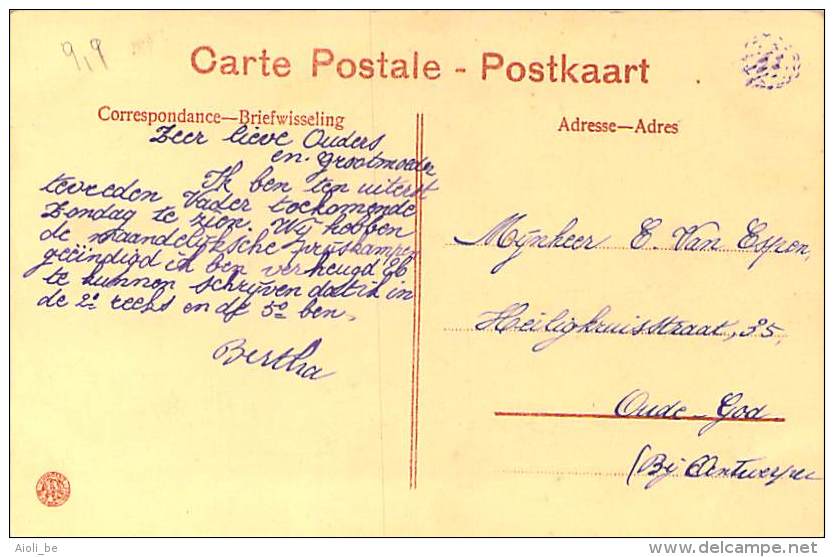 9,9
Carte Postale - Postkaart
Correspondance—Briefwisseling
Zeer lieve Ouders
en grootmoeder
Ik ben ten uiterst
tevreden Vader toekomende
Zondag te zien. Wij hebben
de maandelijksche prijskampen
geëindigd ik ben verheugd
te kunnen schrijven dat ik in
de 2e reeks en de 5e ben.
Bertha
Adresse—Adres
Mijnheer E. Van Espen,
Heiligkruisstraat, 35,
Oude-God
(Bij Antwerpen
Aioli_be
www.delcampe.net